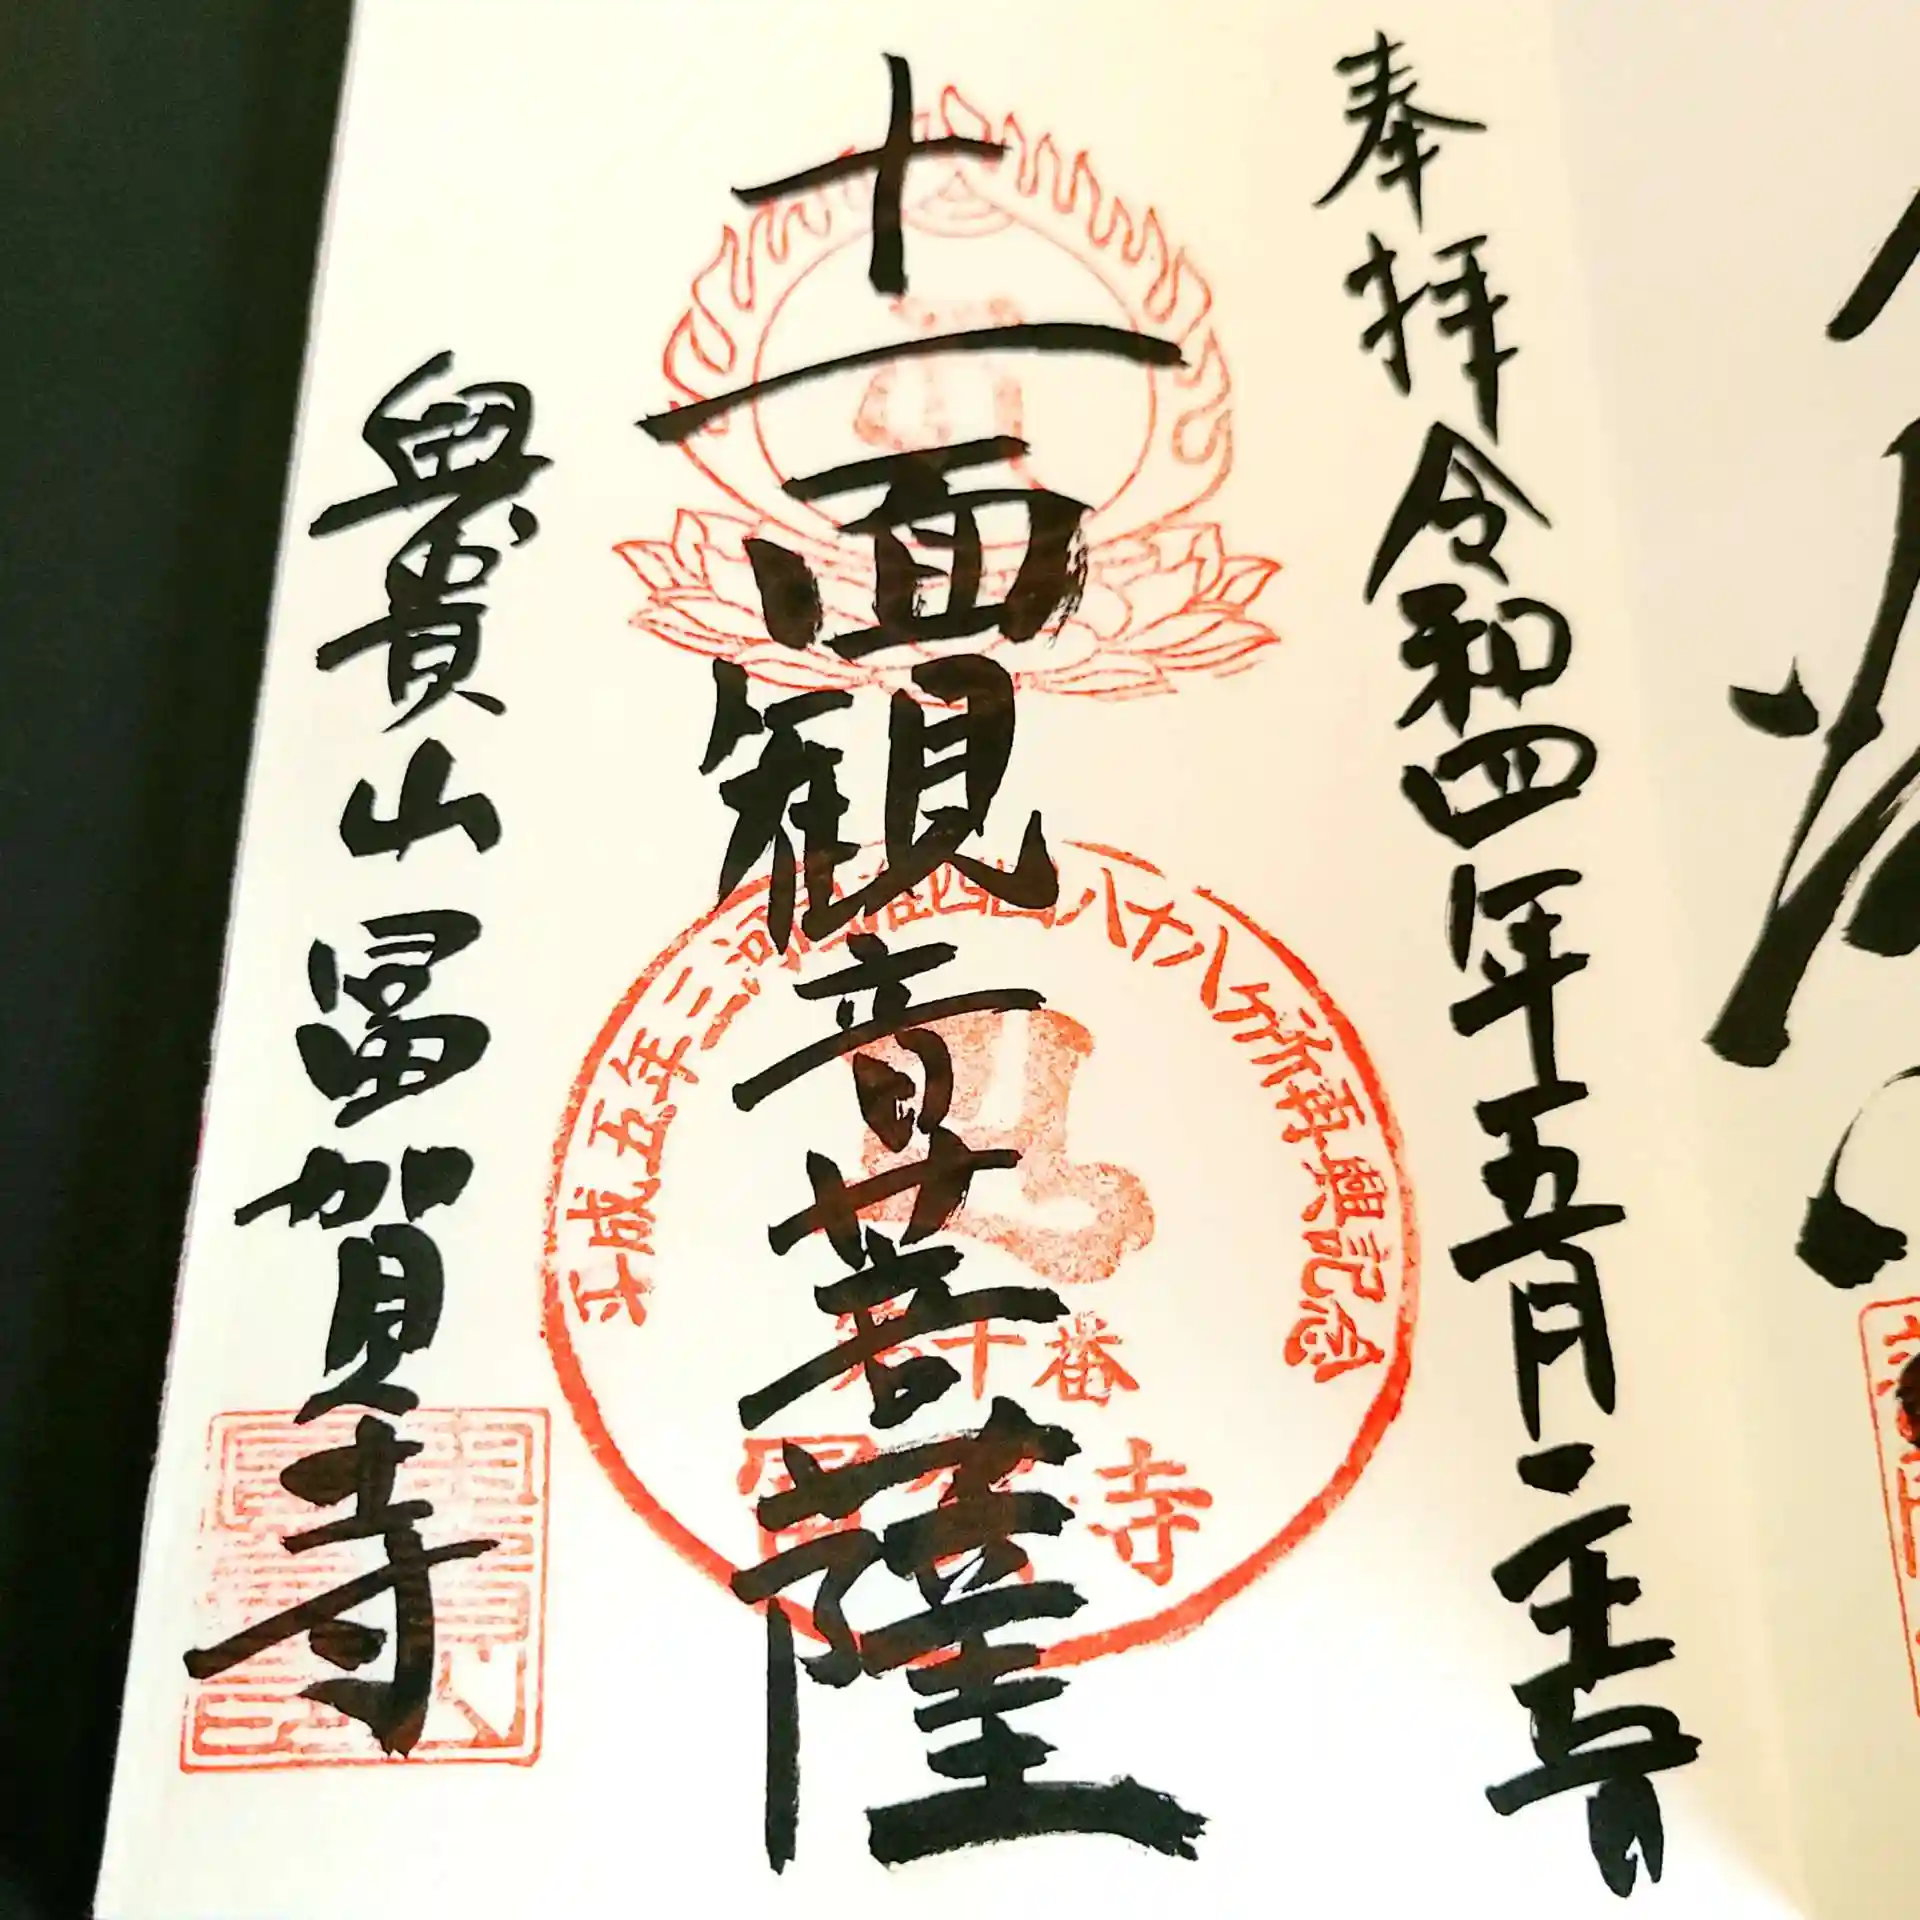 奉拝 令和四年五月二十五日
十一面観音菩薩
與貴山冨賀寺
平成五年三河国准四国八十八ヶ所再興記念
十番
寺